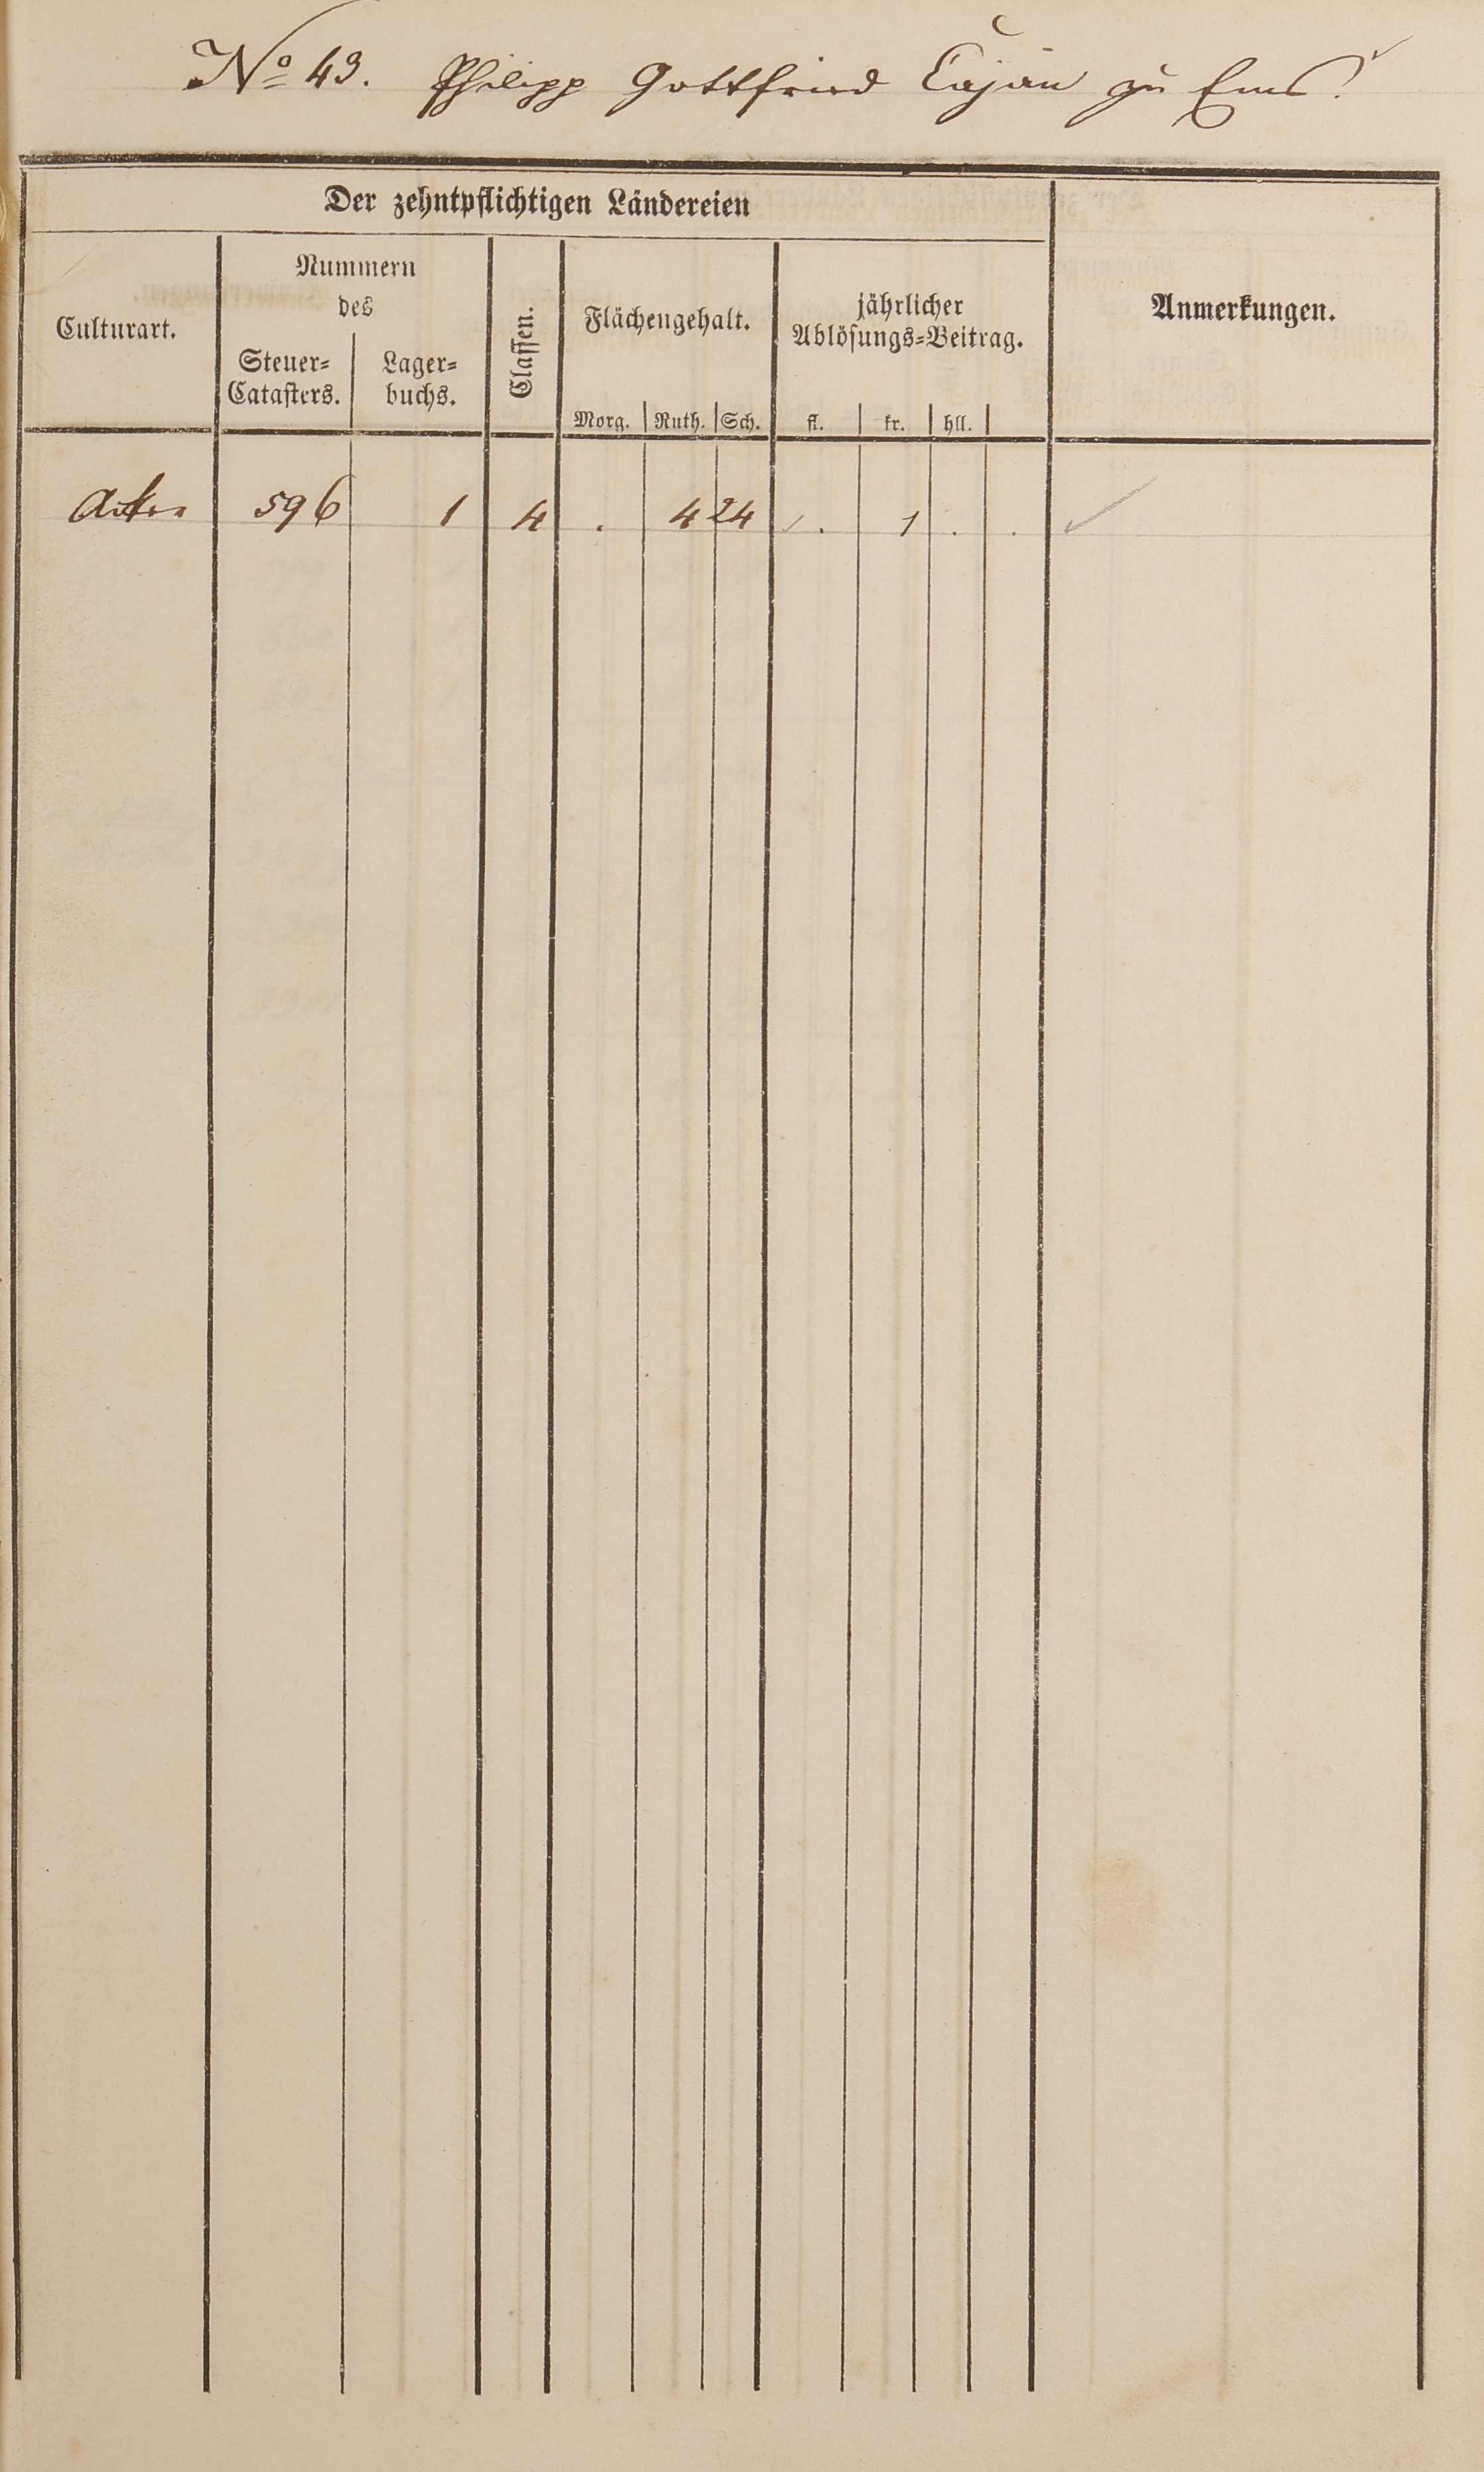 No 43. Philipp Gottfried Cajan zu Ems.
Der zehntpflichtigen Ländereien
Culturart.
Nummern
des
Steuer-
Catasters.
Lager-
buchs.
Classen.
Flächengehalt.
Morg. Ruth. Sch.
jährlicher
Ablösungs-Beitrag.
fl. kr. hll.
Anmerkungen.
Acker 596 1 4 . 4 24 . 1 . .